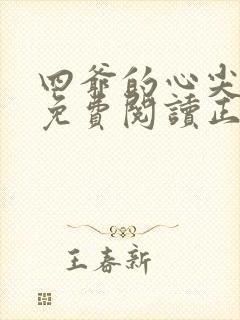 四爺的心尖
免費閱讀正
王春新